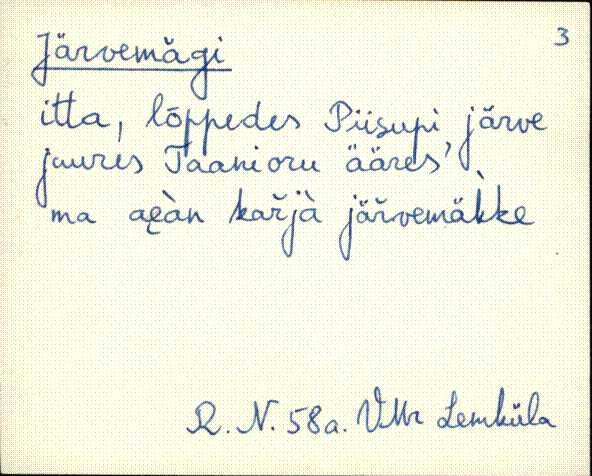 3
Järvemägi
itta, lõppedes Piisupi järve
juures Taanioru ääres,
ma aeàn kařjà jäřvemäkke
R. N. 58a. VMr Lemküla